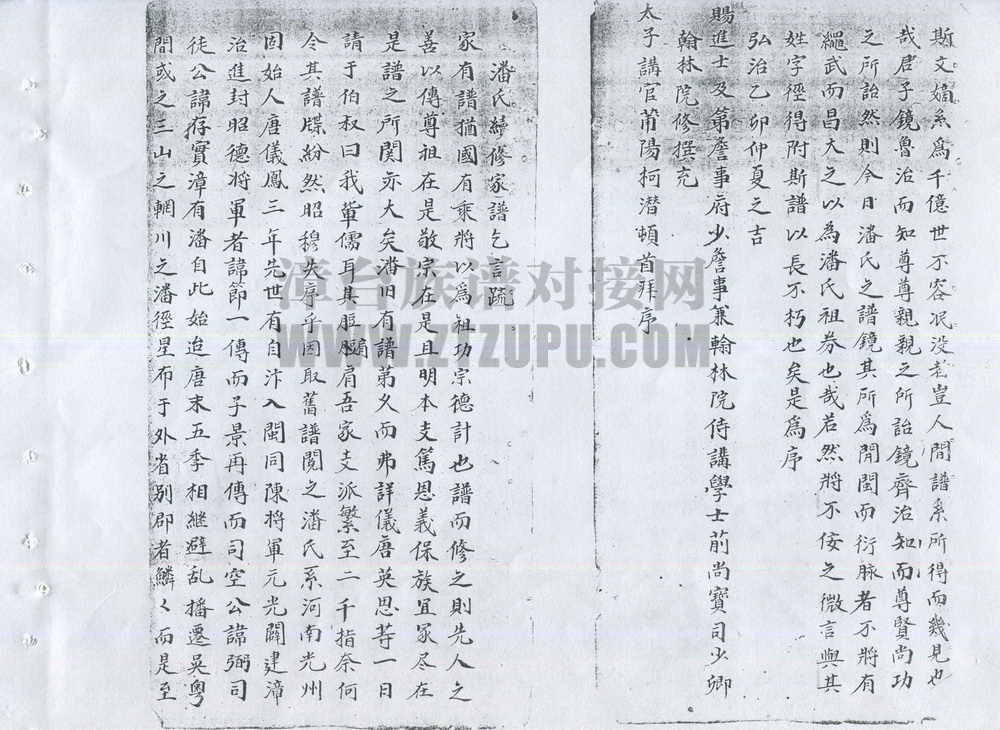 斯文嫡系爲千億世不容泯没者豈人間譜系所得而幾見也
哉君子鏡魯治而知尊尊親親之所詒鏡齊治知而尊賢尚功
之所詒然則今日潘氏之譜鏡其所爲開閩而衍脉者不將有
繩武而昌大之以為潘氏祖券也哉若然將不佞之微言與其
姓字徑得附斯譜以長不朽也矣是爲序
弘治乙卯仲夏之吉
賜進士及第詹事府少詹事兼翰林院侍講學士前尚寶司少卿
翰林院修撰充
太子講官莆陽柯潛頓首拜序
潘氏續修家譜乞言疏
家有譜猶國有乘將以爲祖功宗德計也譜而修之則先人之
善以傳尊祖在是敬宗在是且明本支篤恩義保族宜家尽在
是譜之所関亦大矣潘旧有譜第久而弗詳儀唐英思等一日
請于伯叔曰我軰儒耳具脰肩吾家支派繁至二千指奈何
令其譜牒紛然昭穆失序乎因取舊譜閱之潘氏系河南光州
固始人唐儀鳳三年先世有自汴入閩同陳將軍元光闢建漳
治進封昭德將軍者諱節一傳而子景再傳而司空公諱弼司
徒公諱存實漳有潘自此始迨唐末五季相継避乱播遷吴粤
間或之三山之輞川之潘徑星布于外省别郡者鱗〻而是至
漳台族谱对接网
WWW.ZTZUPU.COM